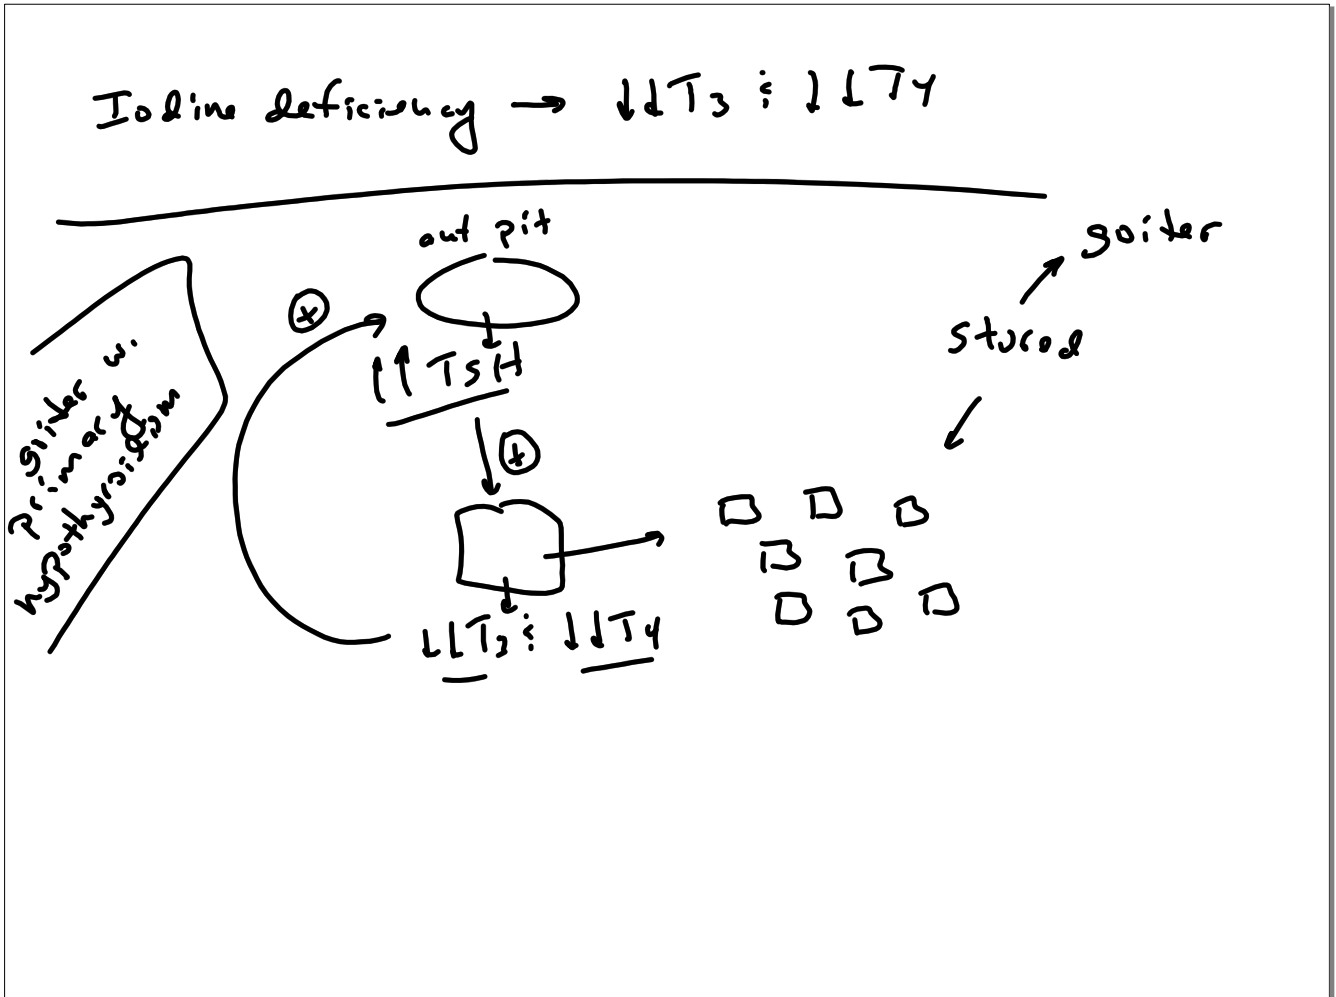 Iodine deficiency → ↓↓T3 & ↓↓T4
ant pit
goiter
⊕
stored
↑↑ TSH
⊕
goiter w.
primary
hypothyroidism
↓↓T3 & ↓↓T4